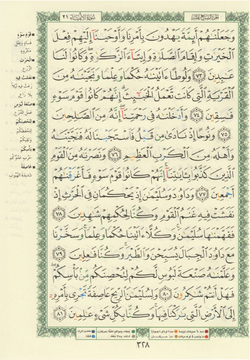 وَجَعَلْنَٰهُمْ أَئِمَّةً يَهْدُونَ بِأَمْرِنَا وَأَوْحَيْنَآ إِلَيْهِمْ فِعْلَ
ٱلْخَيْرَٰتِ وَإِقَامَ ٱلصَّلَوٰةِ وَإِيتَآءَ ٱلزَّكَوٰةِ وَكَانُوا۟ لَنَا
عَٰبِدِينَ ٧٣ وَلُوطًا ءَاتَيْنَٰهُ حُكْمًا وَعِلْمًا وَنَجَّيْنَٰهُ مِنَ
ٱلْقَرْيَةِ ٱلَّتِى كَانَت تَّعْمَلُ ٱلْخَبَٰٓئِثَ إِنَّهُمْ كَانُوا۟ قَوْمَ سَوْءٍ
فَٰسِقِينَ ٧٤ وَأَدْخَلْنَٰهُ فِى رَحْمَتِنَآ إِنَّهُۥ مِنَ ٱلصَّٰلِحِينَ
٧٥ وَنُوحًا إِذْ نَادَىٰ مِن قَبْلُ فَٱسْتَجَبْنَا لَهُۥ فَنَجَّيْنَٰهُ
وَأَهْلَهُۥ مِنَ ٱلْكَرْبِ ٱلْعَظِيمِ ٧٦ وَنَصَرْنَٰهُ مِنَ ٱلْقَوْمِ
ٱلَّذِينَ كَذَّبُوا۟ بِـَٔايَٰتِنَآ إِنَّهُمْ كَانُوا۟ قَوْمَ سَوْءٍ فَأَغْرَقْنَٰهُمْ
أَجْمَعِينَ ٧٧ وَدَاوُۥدَ وَسُلَيْمَٰنَ إِذْ يَحْكُمَانِ فِى ٱلْحَرْثِ إِذْ
نَفَشَتْ فِيهِ غَنَمُ ٱلْقَوْمِ وَكُنَّا لِحُكْمِهِمْ شَٰهِدِينَ ٧٨
فَفَهَّمْنَٰهَا سُلَيْمَٰنَ وَكُلًّا ءَاتَيْنَا حُكْمًا وَعِلْمًا وَسَخَّرْنَا
مَعَ دَاوُۥدَ ٱلْجِبَالَ يُسَبِّحْنَ وَٱلطَّيْرَ وَكُنَّا فَٰعِلِينَ ٧٩
وَعَلَّمْنَٰهُ صَنْعَةَ لَبُوسٍ لَّكُمْ لِتُحْصِنَكُم مِّنۢ بَأْسِكُمْ
فَهَلْ أَنتُمْ شَٰكِرُونَ ٨٠ وَلِسُلَيْمَٰنَ ٱلرِّيحَ عَاصِفَةً تَجْرِى بِأَمْرِهِۦٓ
إِلَى ٱلْأَرْضِ ٱلَّتِى بَٰرَكْنَا فِيهَا وَكُنَّا بِكُلِّ شَىْءٍ عَٰلِمِينَ ٨١
٣٢٨